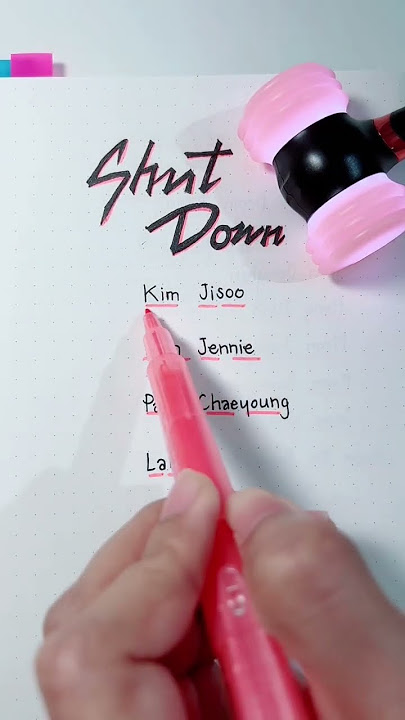 Shut
Down
Kim Jisoo
Jennie
Chaeyoung